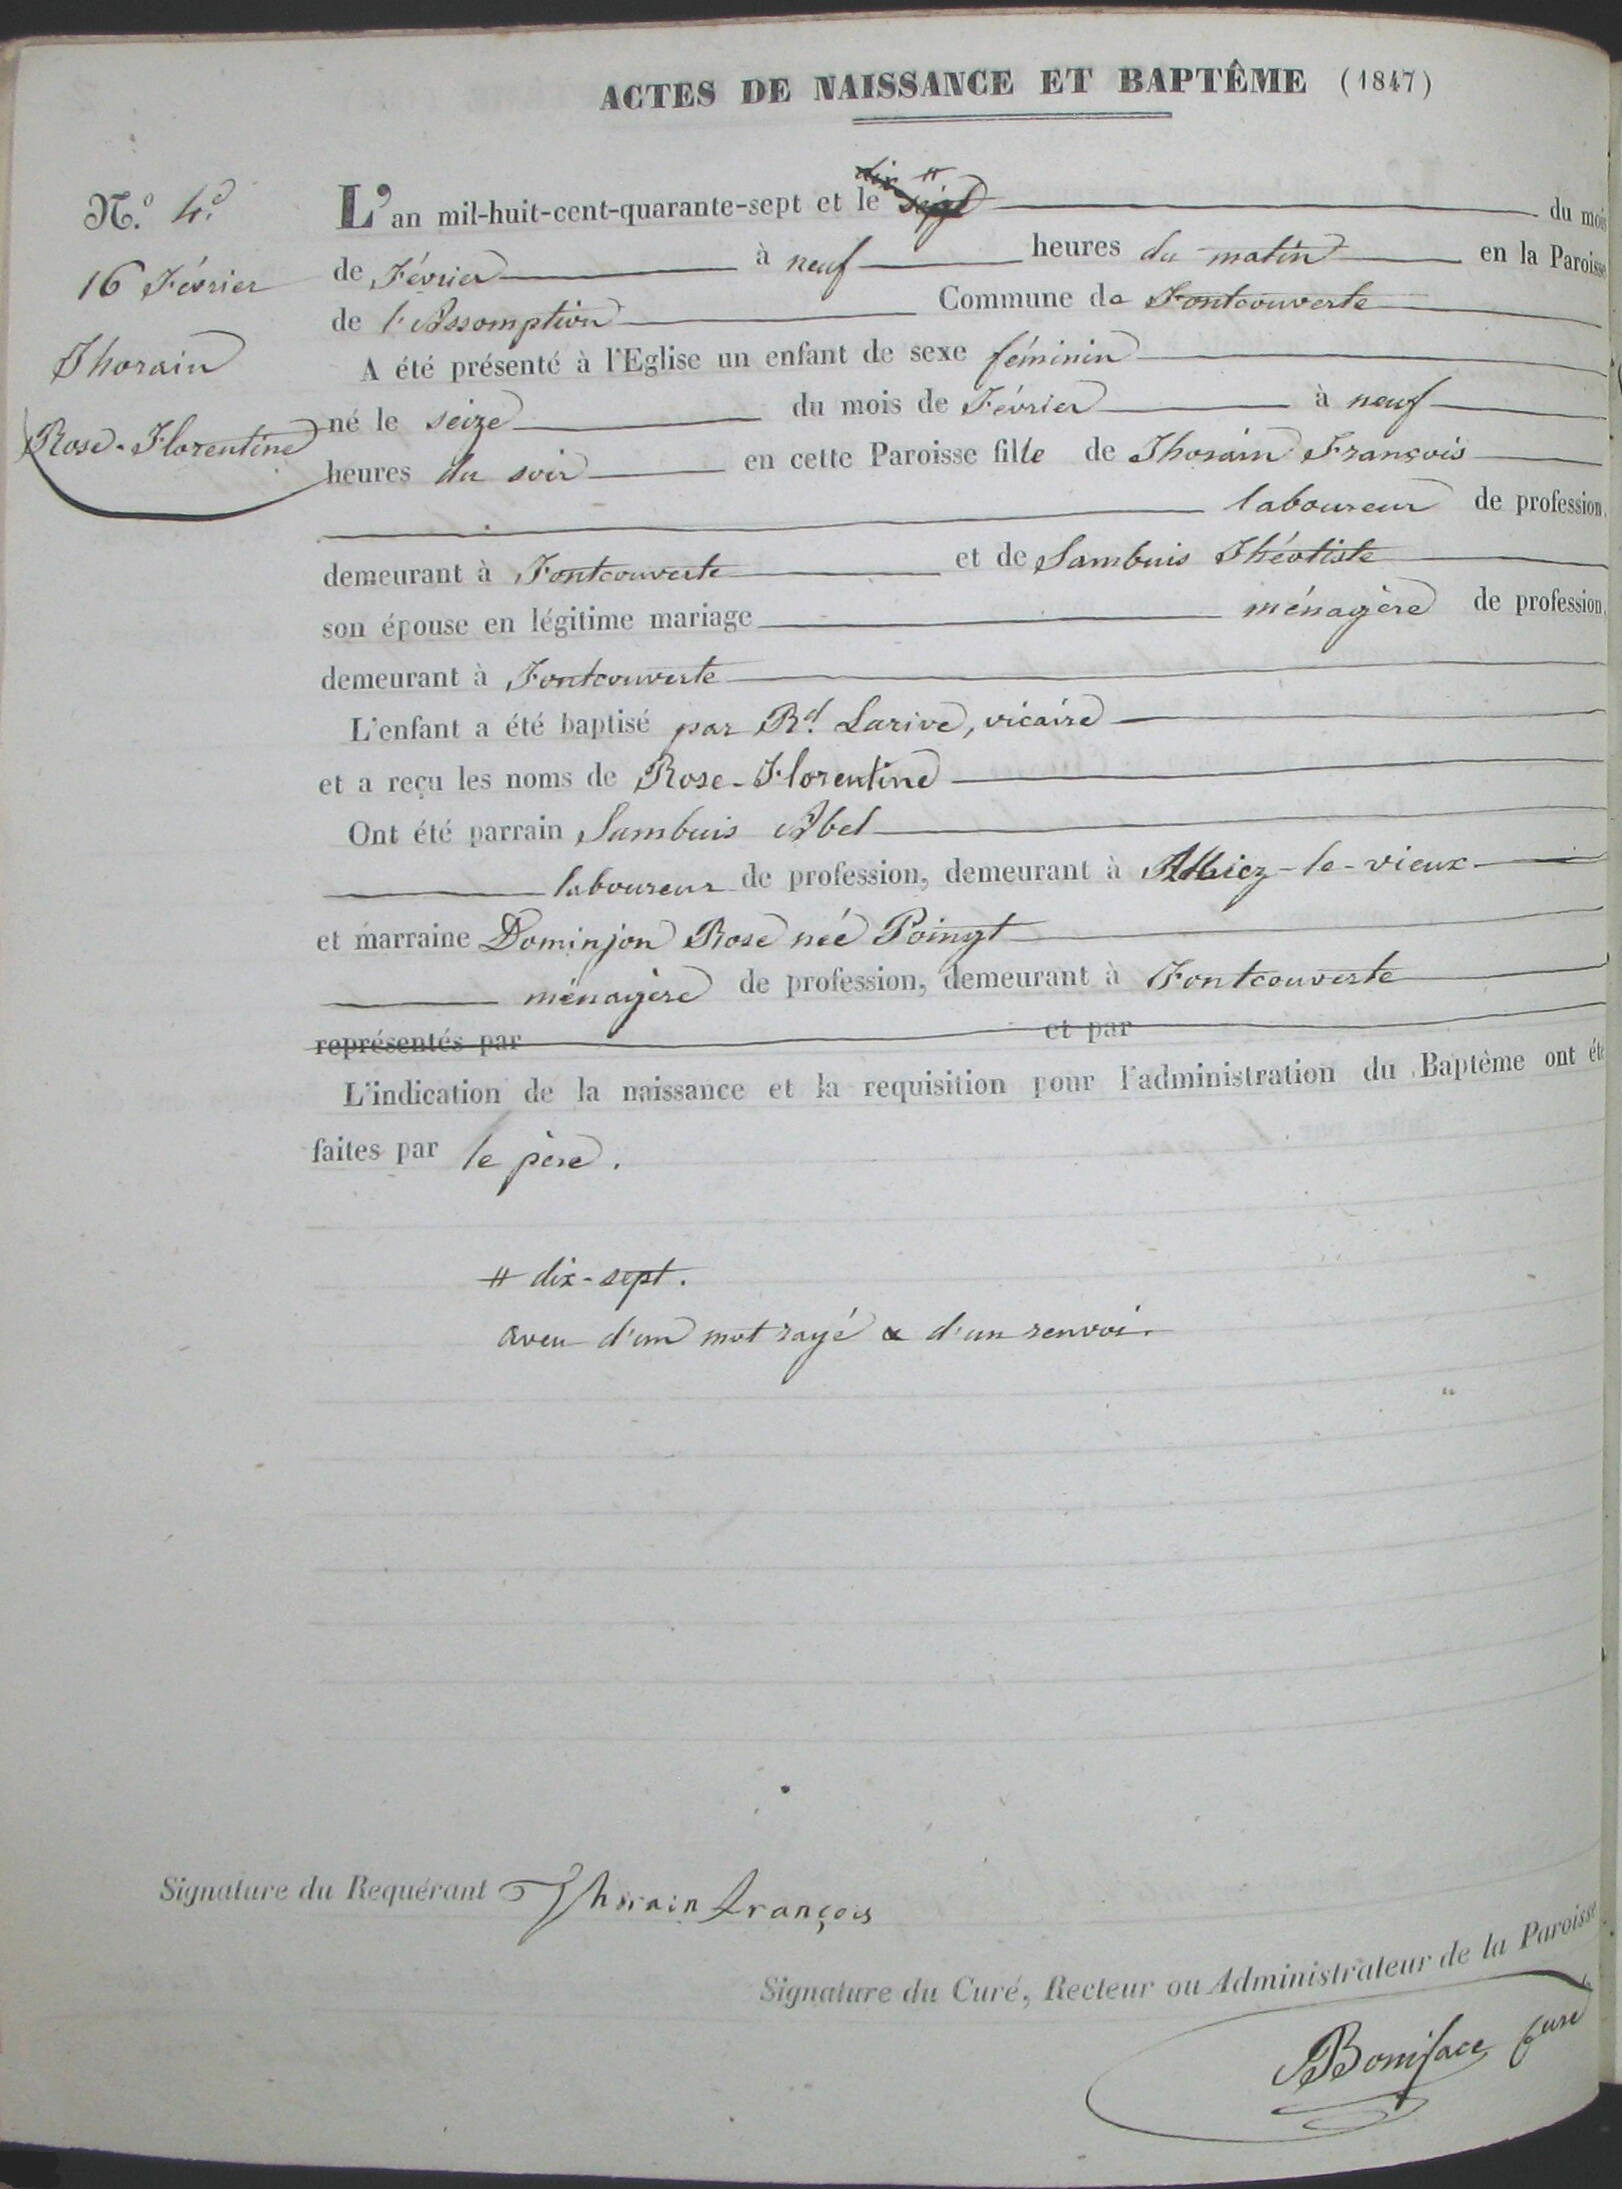 ACTES DE NAISSANCE ET BAPTÊME (1847)
N.º 4.
16 Février
Thorain
Rose-Florentine
L'an mil-huit-cent-quarante-sept et le dix- # du mois
de Février à neuf heures du matin en la Paroisse
de l'Assomption Commune de Fontcouverte
A été présenté à l'Eglise un enfant de sexe féminin
né le seize du mois de Février à neuf
heures du soir en cette Paroisse fille de Thorain François
laboureur de profession,
demeurant à Fontcouverte et de Sambuis Théotiste
son épouse en légitime mariage ménagère de profession,
demeurant à Fontcouverte
L'enfant a été baptisé par Rd. Larive, vicaire
et a reçu les noms de Rose-Florentine
Ont été parrain Sambuis Abel
laboureur de profession, demeurant à Albiez-le-vieux
et marraine Dominjon Rose née Poingt
ménagère de profession, demeurant à Fontcouverte
représentés par et par
L'indication de la naissance et la requisition pour l'administration du Baptême ont été
faites par le père.
# dix-sept.
aveu d'un mot rayé & d'un renvoi.
Signature du Requérant Thorain françois
Signature du Curé, Recteur ou Administrateur de la Paroisse
Boniface Curé